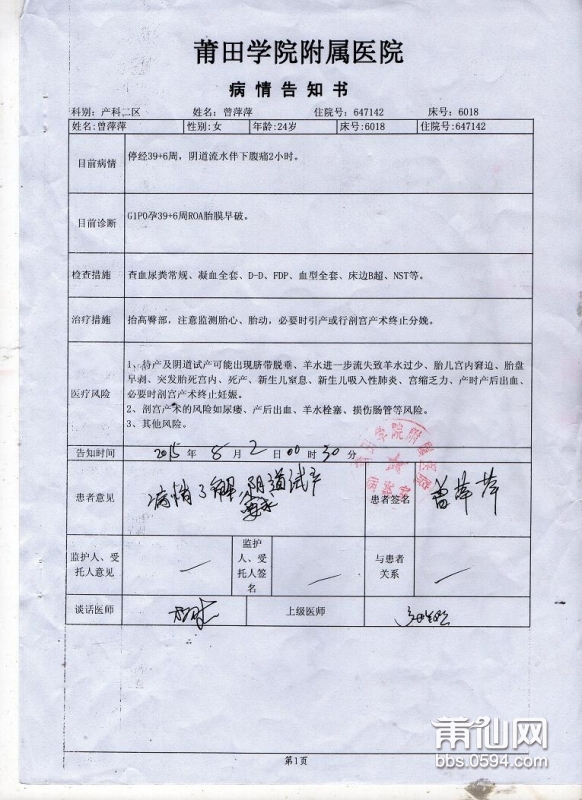 莆田学院附属医院
病情告知书
科别：产科二区 姓名：曾萍萍 住院号：647142 床号：6018
姓名:曾萍萍 性别:女 年龄:24岁 床号:6018 住院号:647142
目前病情 停经39+6周，阴道流水伴下腹痛2小时。
目前诊断 G1P0孕39+6周ROA胎膜早破。
检查措施 查血尿粪常规、凝血全套、D-D、FDP、血型全套、床边B超、NST等。
治疗措施 抬高臀部，注意监测胎心、胎动，必要时引产或行剖宫产术终止分娩。
医疗风险 1、待产及阴道试产可能出现脐带脱垂、羊水进一步流失致羊水过少、胎儿宫内窘迫、胎盘
早剥、突发胎死宫内、死产、新生儿窒息、新生儿吸入性肺炎、宫缩乏力、产时产后出血、
必要时剖宫产术终止妊娠。
2、剖宫产术的风险如尿瘘、产后出血、羊水栓塞、损伤肠管等风险。
3、其他风险。
告知时间 2015 年 8 月 2 日 00 时 30 分
患者意见 病情了解 阴道试产 患者签名 曾萍萍
监护人、受
托人意见 — 监护
人、受
托人签
名 — 与患者
关系 —
谈话医师 上级医师
第1页
莆仙网
bbs.0594.com